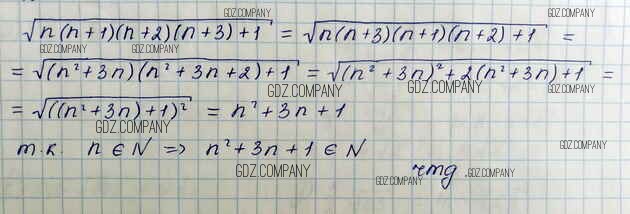 √(n(n+1)(n+2)(n+3)+1) = √(n(n+3)(n+1)(n+2)+1) =
= √((n²+3n)(n²+3n+2)+1) = √((n²+3n)²+2(n²+3n)+1) =
= √(((n²+3n)+1)²) = n²+3n+1
т.к. n ∈ N ⇒ n²+3n+1 ∈ N
чтд.
GDZ.COMPANY
GDZ.COMPANY
GDZ.COMPANY
GDZ.COMPANY
GDZ.COMPANY
GDZ.COMPANY
GDZ.COMPANY
GDZ.COMPANY
GDZ.COMPANY
GDZ.COMPANY
GDZ.COMPANY
GDZ.COMPANY
GDZ.COMPANY
GDZ.COMPANY